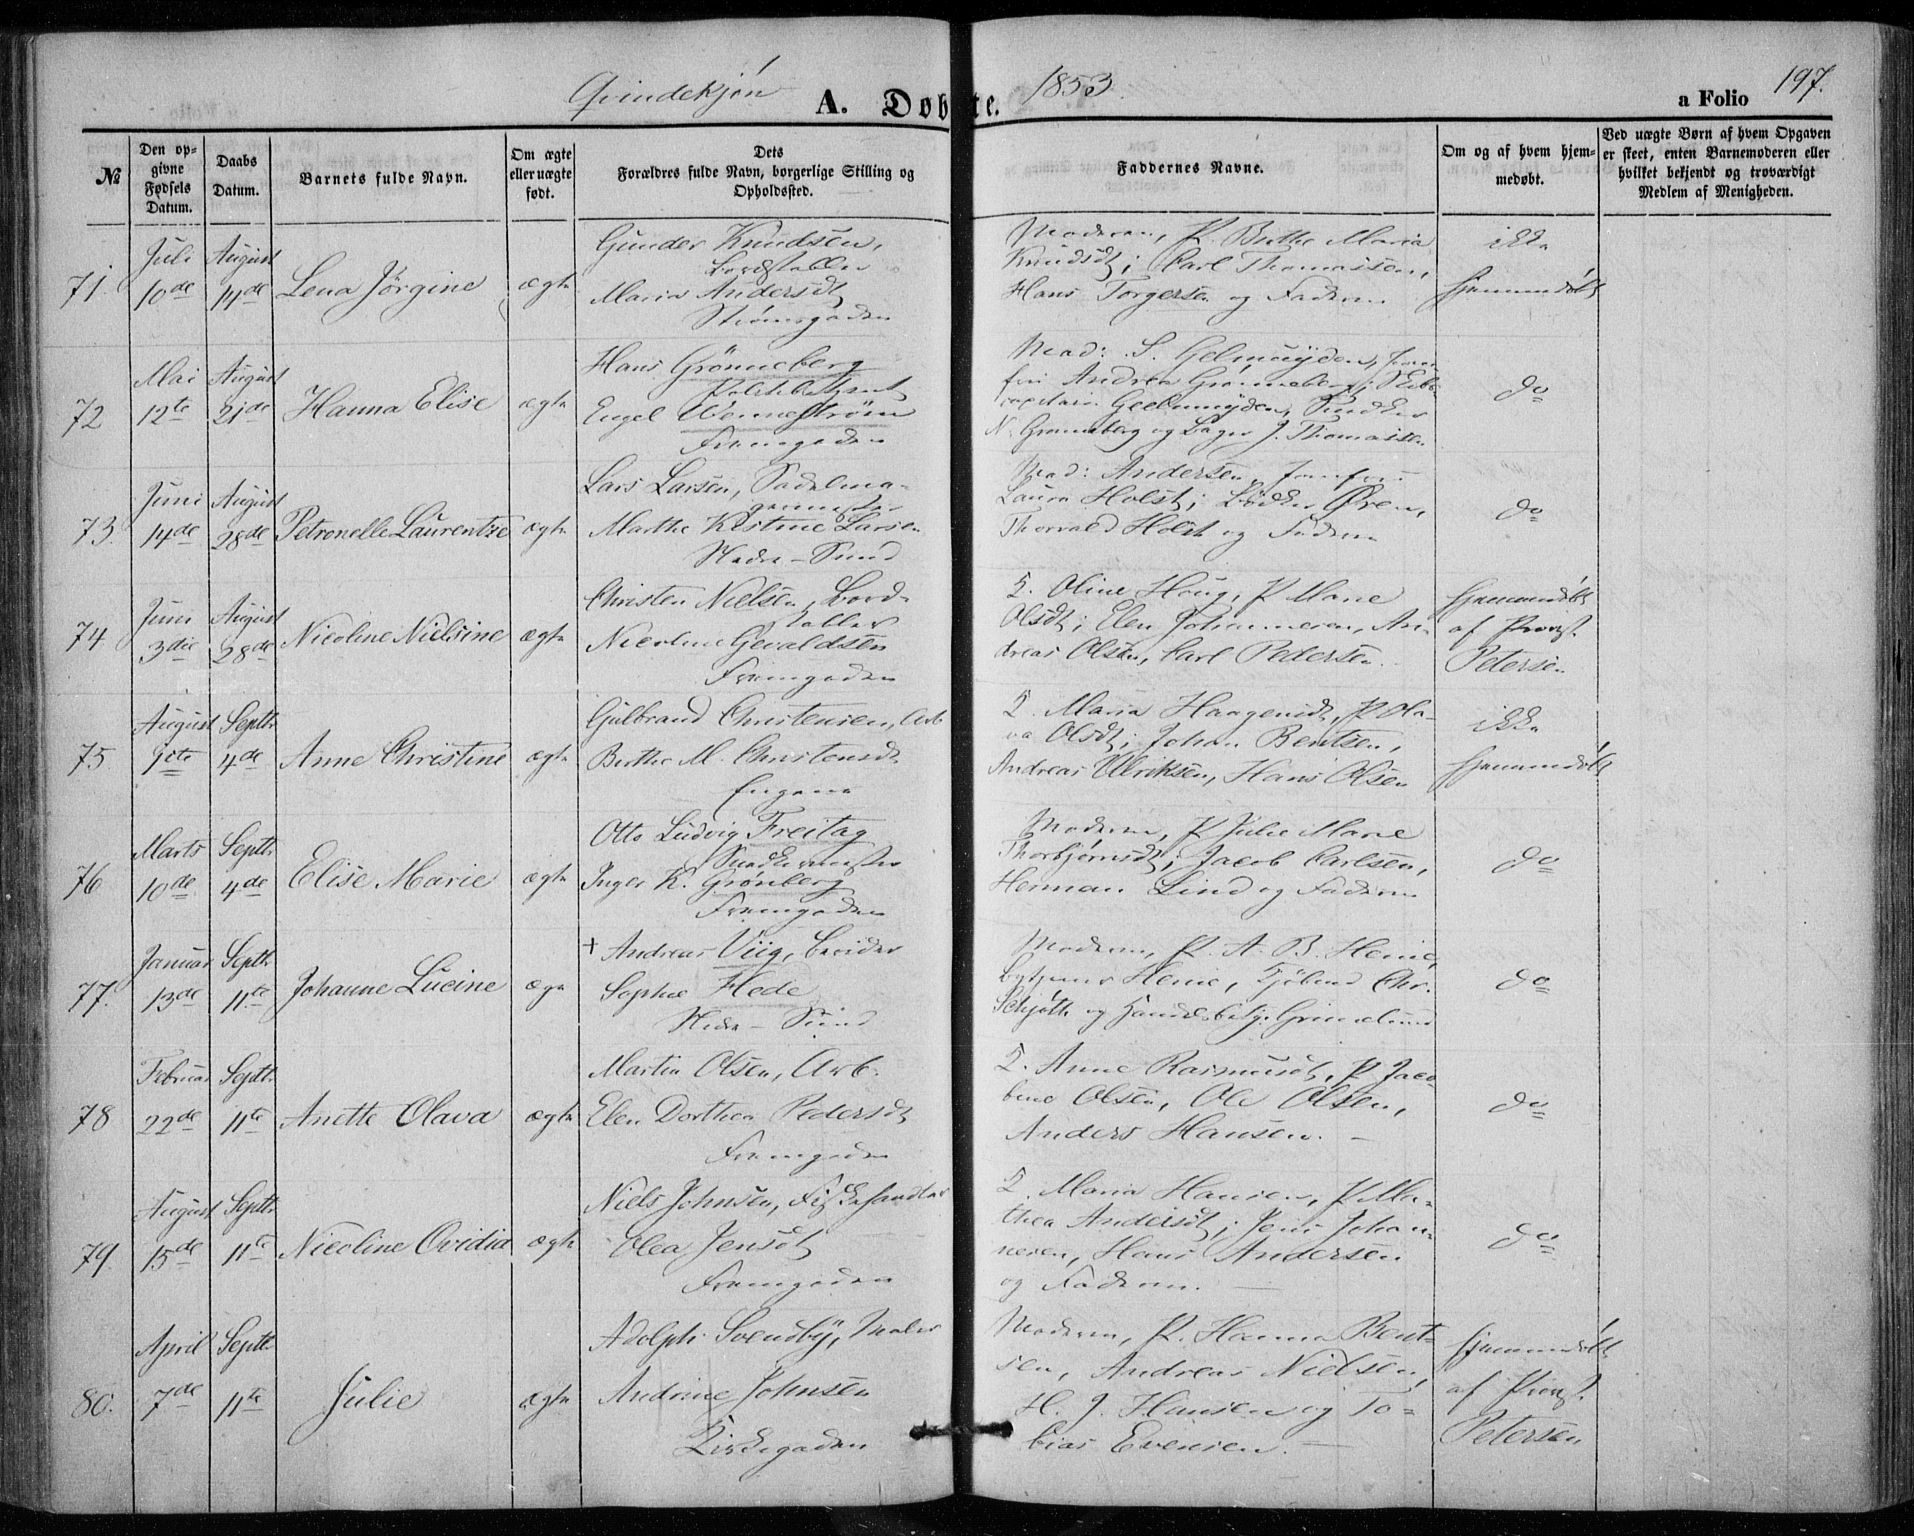 Qvindekjøn A. Døbte. 1853 a Folio 197.
№ Den opgivne Fødsels Datum. Daabs Datum. Barnets fulde Navn. Om ægte eller uægte født. Dets Forældres fulde Navn, borgerlige Stilling og Opholdssted. Faddernes Navne. Om og af hvem hjemmedøbt. Ved uægte Børn af hvem Opgaven er skeet, enten Barnemoderen eller hvilket bekjendt og troværdigt Medlem af Menigheden.
71. Juli 10de August 14de Lena Jørgine ægte
Gunder Knudsen,
Maria Andersdt
Strømsgaden
Moderen, P. Berthe Maria
Knudsdt; Carl Thomassen,
Hans Torgersen og Faderen
ikke
hjemmedøbt
72 Mai 12te August 21de Hanna Elise ægte
Hans Grönneberg
Politibetjent
Engel Wennestrøm
Fremgaden
Mad: S. Gelmuyden, Jom
fru Andrea Grønneberg;
Geelmuyden,
N. Grønneberg og Bager J. Thomassen
do
73. Juni 14de August 28de Petronelle Laurentze ægte
Lars Larsen, Sadelma-
germester
Marthe Kistine Larsen
Nedre-Sund
Mad: Andersen, Jomfru
Laura Holst; Bødker Øren,
Thorvald Holst og Faderen
do
74 Juni 3die August 28de Nicoline Nielsine ægte
Christen Nielsen, Bord-
stabler
Nicoline Gevaldsen
Fremgaden
Q. Oline Houg, P Marie
Olsdt; Elen Johannesen, An-
dreas Olsen, Carl Pedersen.
hjemmedøbt
af Provst
Petersen
75. August 1ste Septbr 4de Anne Christine ægte
Gulbrand Christensen, Arb
Berthe M. Christensdt
Engene
Q. Maria Haagensdt, P Ola-
va Olsdt; Johan Bentsen,
Andreas Ulriksen, Hans Olsen
ikke
hjemmedøbt
76 Marts 10de Septbr 4de Elise Marie ægte
Otto Ludvig Freitag
Snedkermester
Inger K. Grønberg
Fremgaden
Moderen, P Julie Marie
Thorbjørnsdt; Jacob Carlsen,
Herman Lind og Faderen
do
77. Januar 13de Septbr 11te Johanne Lucine
+ Andreas Viig,
Sophie Hede
Nedre-Sund
Moderen, P. A. B. Henie,
Henie, Chr.
Schjøtt og Grimelund
do
78 Februar 22de Septbr 11te Anette Olava ægte
Martin Olsen, Arb.
Elen Dorthea Pedersdt
Fremgaden
Q. Anne Rasmusdt, P Jaco-
bine Olsen, Ole Olsen,
Anders Hansen. —
do
79. August 15de Septbr 11te Nicoline Ovidia ægte
Niels Johnsen, Fiskehandler
Olea Jensdt
Fremgaden
Q. Maria Hansen, P Ma-
thea Andersdt; Jens Johan-
nesen, Hans Andersen
og Faderen. —
do
80. April 7de Septbr 11te Julie ægte
Adolph Svendby, Maler
Andrine Johnsen
Kirkegaden
Moderen, P. Hanna Bent-
sen, Andreas Nielsen,
H. J. Hansen og To-
bias Evensen. —
hjemmedøbt
af Provst
Petersen